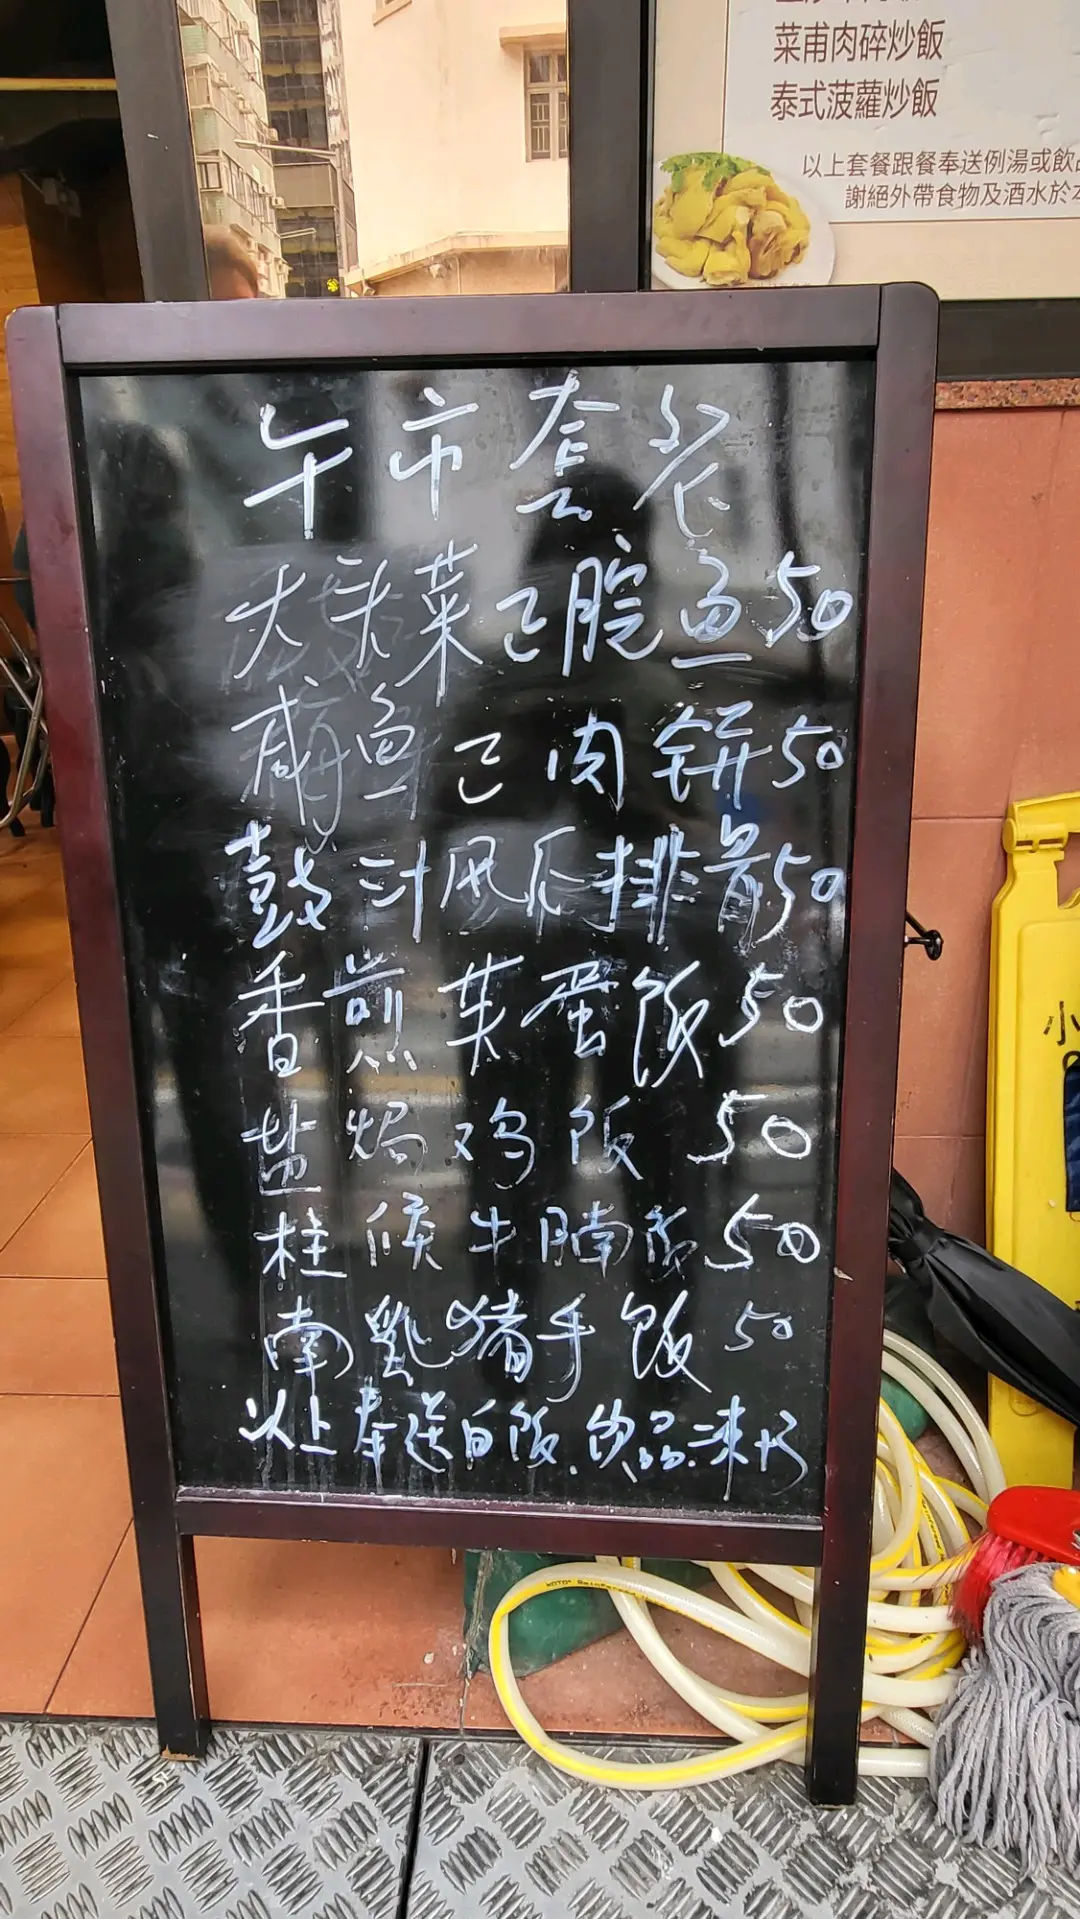 菜甫肉碎炒飯
泰式菠蘿炒飯
以上套餐跟餐奉送例湯或飲品
謝絕外帶食物及酒水於本
午市套餐
大头菜己脘鱼50
咸鱼己肉饼50
鼓汁凤爪排骨50
香煎芙蛋饭50
盐焗鸡饭50
柱候牛腩饭50
南乳猪手饭50
以上奉送白饭.饮品.冻+3
小